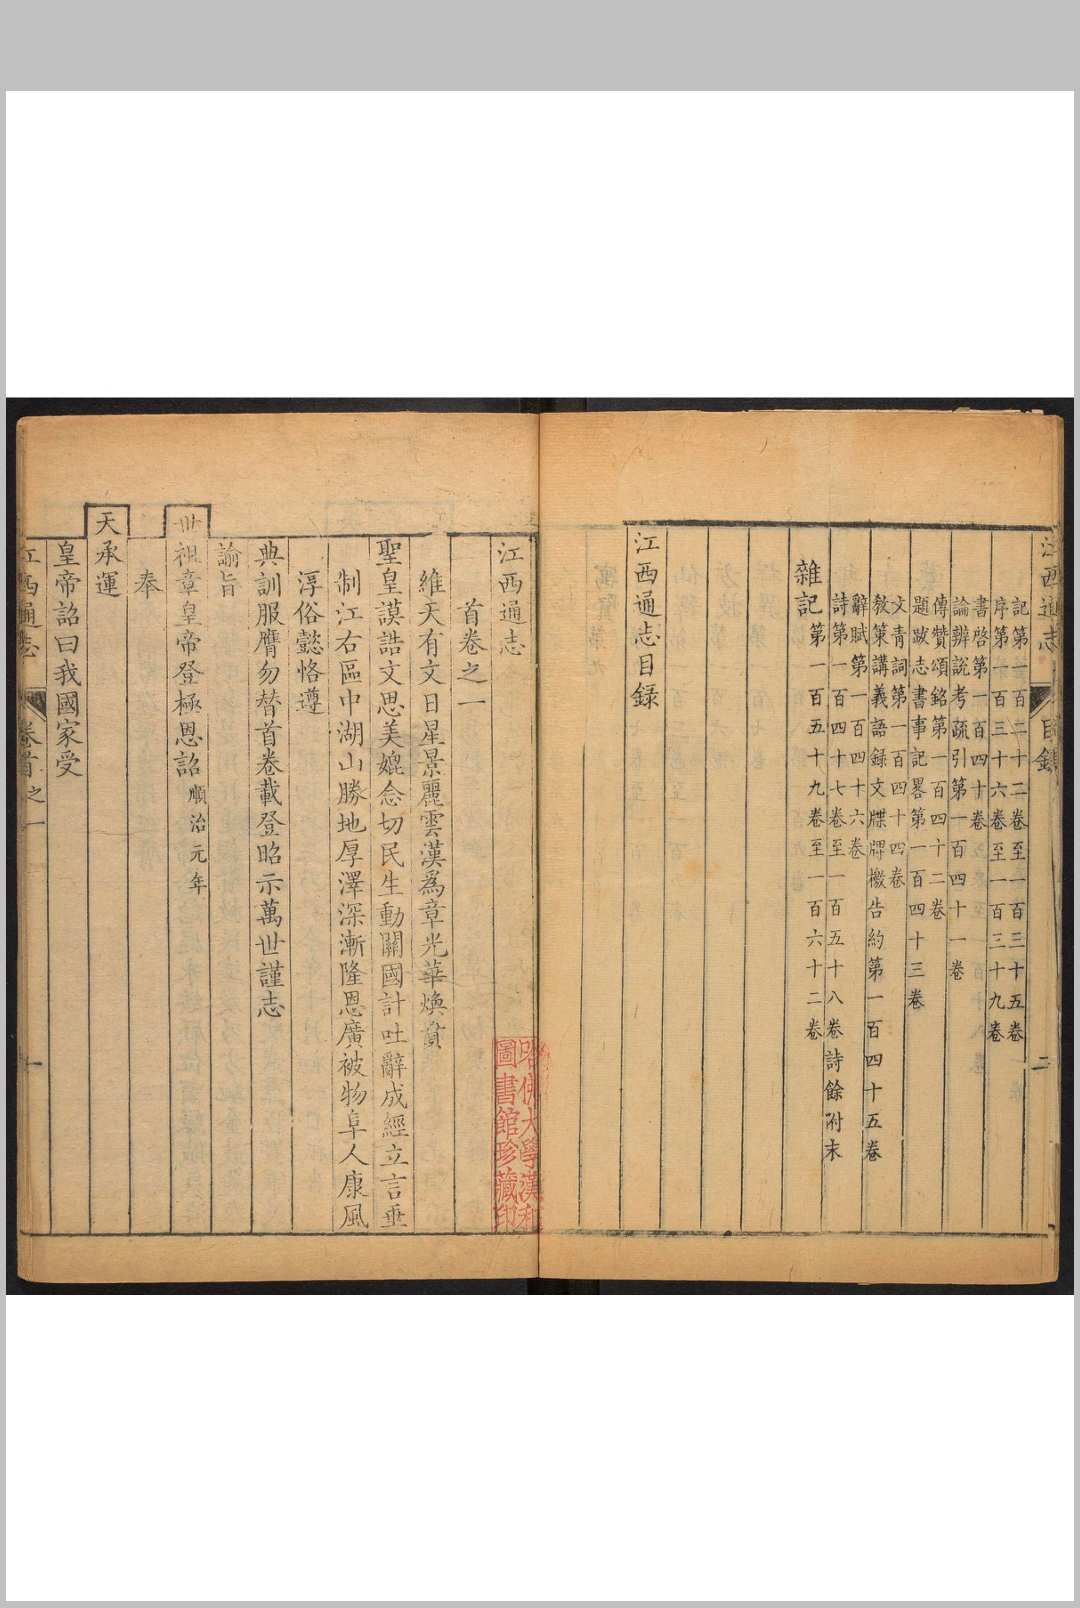 江西通志 目錄 二
記第一百二十二卷至一百三十五卷
序第一百三十六卷至一百三十九卷
書啓第一百四十卷
論辨說考疏引第一百四十一卷
傳贊頌銘第一百四十二卷
題跋志書事記畧第一百四十三卷
文青詞第一百四十四卷
教策講義語録文牒牌檄告約第一百四十五卷
辭賦第一百四十六卷
詩第一百四十七卷至一百五十八卷詩餘附末
雜記第一百五十九卷至一百六十二卷
江西通志目録
江西通志
首卷之一
維天有文日星景麗雲漢為章光華煥賁
聖皇謨誥文思美媲念切民生動關國計吐辭成經立言垂
制江右區中湖山勝地厚澤深漸隆恩廣被物阜人康風
淳俗懿恪遵
典訓服膺勿替首卷載登昭示萬世謹志
諭旨
世祖章皇帝登極恩詔順治元年
奉
天承運
皇帝詔曰我國家受
江西通志 卷首之一 一
哈佛大學漢和
圖書館珍藏印